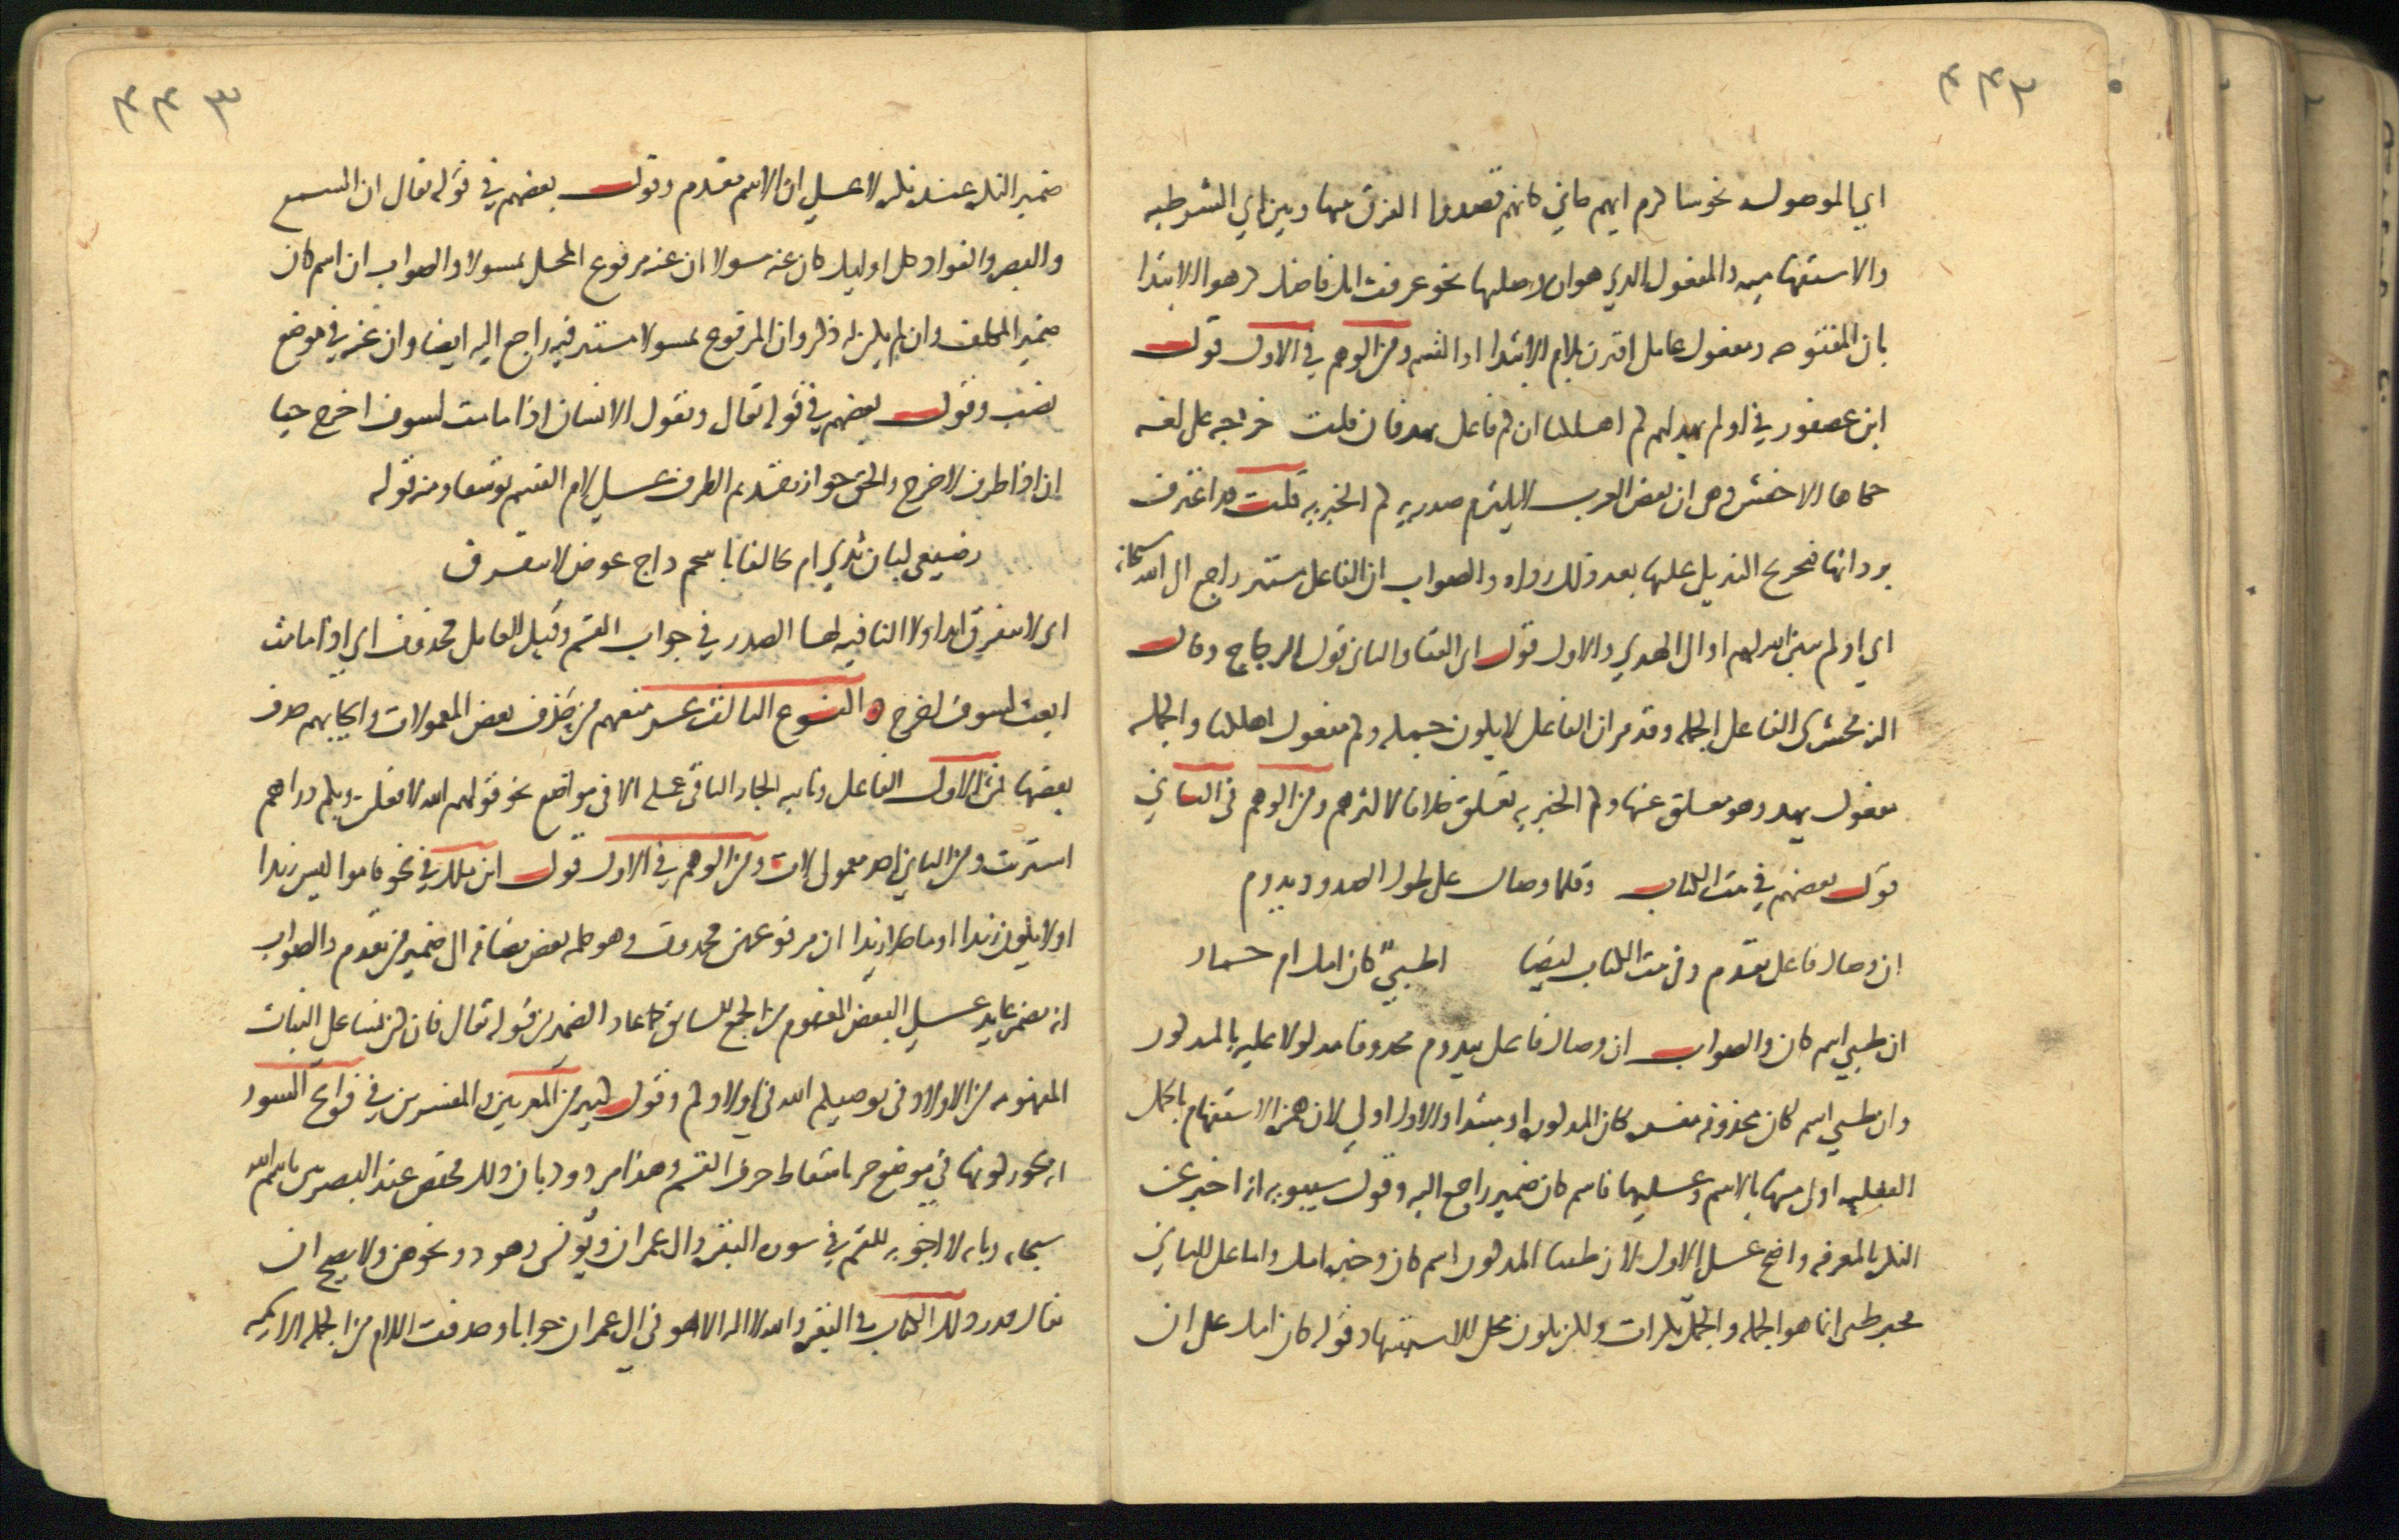 ٤٤٢
اي الموصوله نحو سا كرم ايهم جاني كانهم قصدوا الفرق بينها وبين اي الشرطيه
والاستفهاميه والمفعول الذي هو ان وصلتها نحو عرفت انك فاضل كرهوا الابتدا
بان المفتوحه ومعمول عامل اقترن بلام الابتدا او القسم ومن الوهم في الاول قول
ابن عصفور في اولم يهد لهم كم اهلكنا ان كم فاعل يهد فان قلت خرجه على لغه
حكاها الاخفش وهي ان بعض العرب لا يلتزم صدريه كم الخبريه قلت قد اعترف
بردائتها فتخريج التنزيل عليها بعد ذلك رداه والصواب ان الفاعل مستتر راجع الى الله سبحانه
اي اولم يبين الله لهم او الى الهدي والاول قول ابي البقا والثاني قول الزجاج وقال
الزمخشرى الفاعل الجمله وقد مر ان الفاعل لا يكون جمله وكم مفعول اهلكنا والجمله
مفعول يهد وهو معلق عنها وكم الخبريه تعلق خلافا لاكثرهم ومن الوهم في الثاني
قول بعضهم في بيت الكتاب وقلما وصال على طول الصدود يدوم
ان وصال فاعل تقدم وفى بيت الكتاب ايضا اظبيٌ كان امك ام حمار
ان ظبي اسم كان والصواب ان وصال فاعل بيدوم محذوفا مدلولا عليه بالمذكور
وان ظبي اسم لكان محذوفه مفسره بكان المذكوره او مبتدا والاول اولي لان همزه الاستفهام بالجمل
الفعليه اولى منها بالاسميه وعليهما فاسم كان ضمير راجع اليه وقول سيبويه انه اخبر عن
النكره بالمعرفه واضح على الاول لان ظبيا المذكور اسم كان وخبره امك واما على الثاني
فخبر ظبى انما هو الجمله والجمل نكرات ولكن يكون محل الاستشهاد قوله كان امك على ان
٤٤٣
ضمير النكره عنده نكره لا على ان الاسم مقدم وقول بعضهم في قوله تعالى ان السمع
والبصر والفواد كل اوليك كان عنه مسولا ان عنه مرفوع المحل بمسولا والصواب ان اسم كان
ضمير المكلف وان لم يجر له ذكر وان المرفوع بمسولا مستتر فيه راجع اليه ايضا وان عنه في موضع
نصب وقول بعضهم في قوله تعالى ويقول الانسان اذا ما مت لسوف اخرج حيا
ان اذا ظرف لاخرج والحق جواز تقديم الظرف على لام القسم توسعا ومنه قوله
رضيعي لبان ثدي ام تحالفا باسحم داج عوض لا نتفرق
اى لا نتفرق ابدا ولا النافيه لها الصدر في جواب القسم وقيل العامل محذوف اي ااذا ما مت
ابعث لسوف اخرج النوع الثالث عشر منعهم من حذف بعض المعمولات وايجابهم حذف
بعضها فمن الاول الفاعل ونايبه الجار الباقى عمله الا فى مواضع نحو قولهم الله لافعلن وبكم درهم
اشتريت ومن الثاني احد معمولى لات ومن الوهم في الاول قول ابن مالك في نحو قاموا ليس زيدا
او لا يكون زيدا او ما خلا زيدا ان مرفوعهن محذوف وهو كلمه بعض مضافه الى ضمير من تقدم والصواب
انه مضمر عايد على البعض المفهوم من الجمع السابق كما عاد الضمير من قوله تعالى فان كن نسا على البنات
المفهومه من الاولاد فى يوصيكم الله في اولادكم وقول كثير من المعربين والمفسرين في فواتح السور
انه يجوز كونها في موضع جر باسقاط حرف القسم وهذا مردود بان ذلك مختص عند البصريين باسم الله
سبحانه وبانه لا اجوبه للقسم في سوره البقره وال عمران ويونس وهود ونحوهن ولا يصح ان
يقال قدر ذلك الكتاب في البقره والله لا اله الا هو في ال عمران جوابا وحذفت اللام من الجمله الاسميه